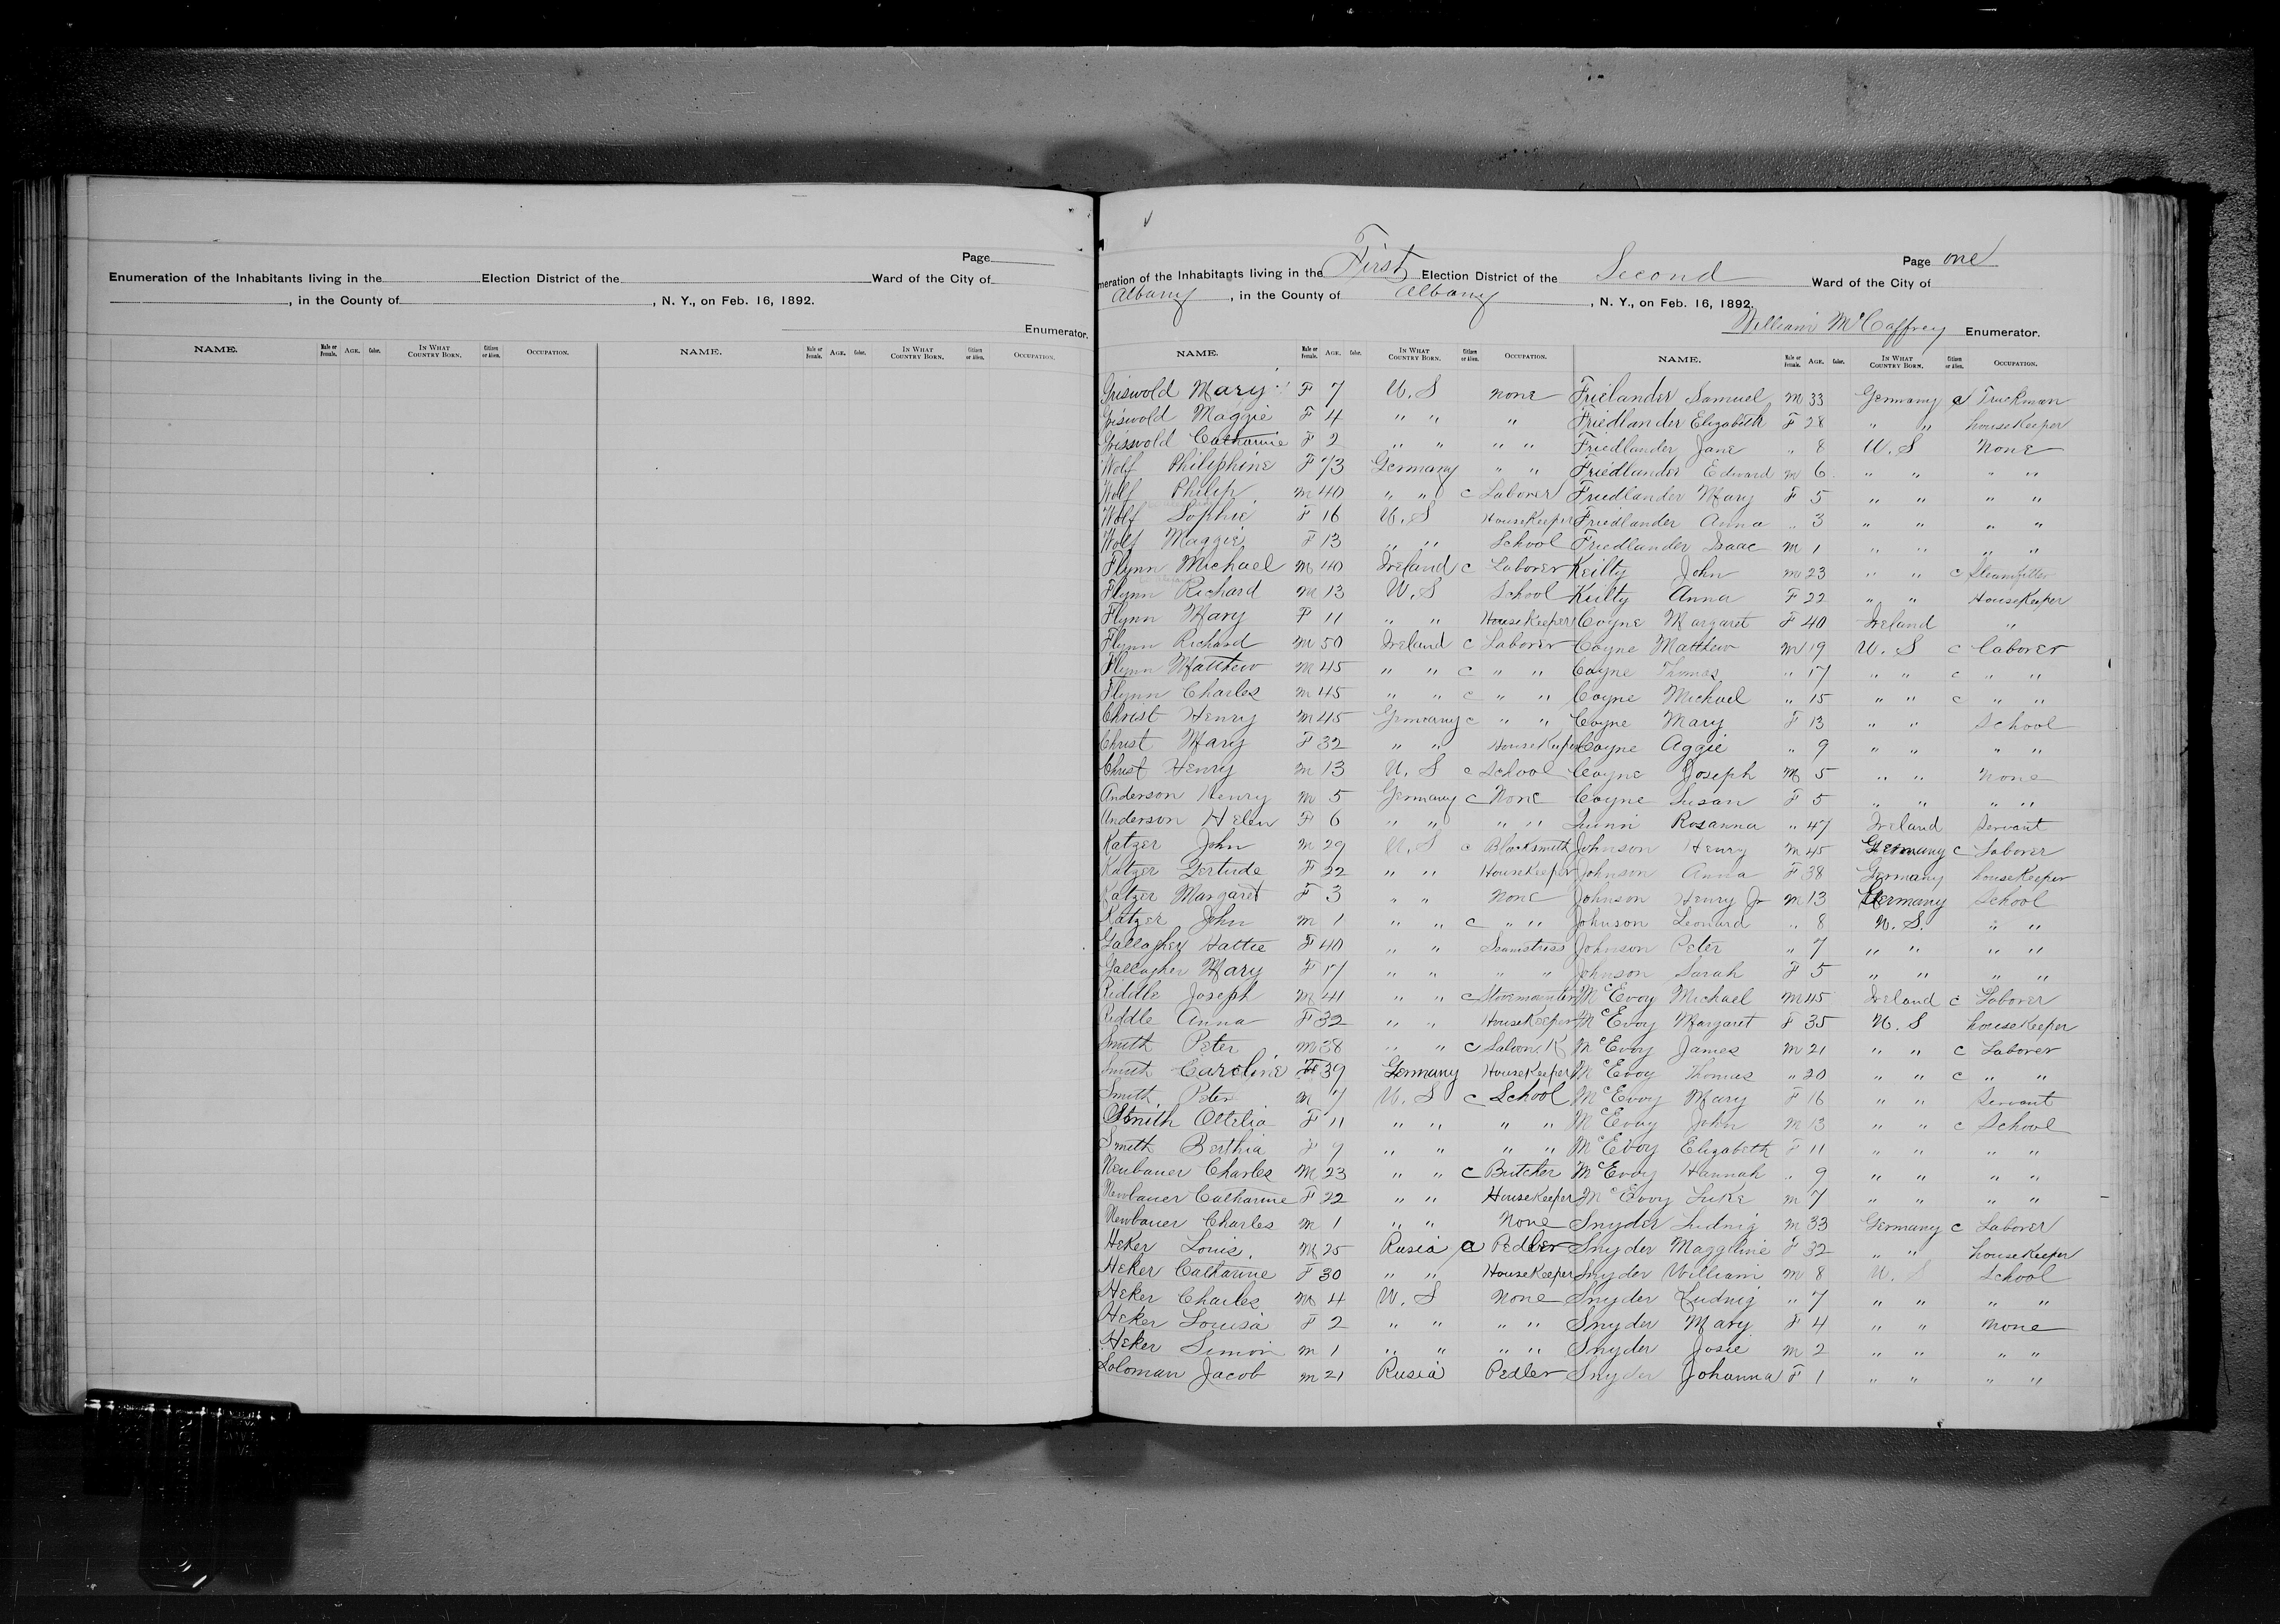 Page
Enumeration of the Inhabitants living in the Election District of the Ward of the City of
, in the County of , N. Y., on Feb. 16, 1892.
Enumerator.
NAME. Male or Female. AGE. Color. IN WHAT COUNTRY BORN. Citizen or Alien. OCCUPATION. NAME. Male or Female. AGE. Color. IN WHAT COUNTRY BORN. Citizen or Alien. OCCUPATION.
Page one
meration of the Inhabitants living in the First Election District of the Second Ward of the City of
Albany, in the County of Albany, N. Y., on Feb. 16, 1892.
William McCaffrey Enumerator.
NAME. Male or Female. AGE. Color. IN WHAT COUNTRY BORN. Citizen or Alien. OCCUPATION. NAME. Male or Female. AGE. Color. IN WHAT COUNTRY BORN. Citizen or Alien. OCCUPATION.
Griswold Mary F 7 U. S none
Griswold Maggie F 4 " " "
Grisswold Catharine F 2 " " " "
Wolf Philiphine F 73 Germany " "
Wolf Philip m 40 " " c Laborer
Wolf Sophie F 16 U. S HouseKeeper
Wolf Maggie F 13 " " School
Flynn Michael m 40 Ireland c Laborer
Flynn Richard m 13 U. S School
Flynn Mary F 11 " " HouseKeeper
Flynn Richard m 50 Ireland c Laborer
Flynn Matthew m 45 " " c " "
Flynn Charles m 45 " " c " "
Christ Henry m 45 Germany c " "
Christ Mary F 32 " " HouseKeeper
Christ Henry m 13 U. S c School
Anderson Henry m 5 Germany c None
Anderson Helen F 6 " " " "
Katzer John m 29 U. S c Blacksmith
Katzer Gertude F 22 " " HouseKeeper
Katzer Margaret F 3 " " None
Katzer John m 1 " " c " "
Gallagher Hattie F 40 " " Seamstress
Gallagher Mary F 17 " " " "
Riddle Joseph m 41 " " c Stovemounter
Riddle Anna F 32 " " HouseKeeper
Smith Peter m 38 " " c Saloon. K
Smith Caroline F 39 Germany HouseKeeper
Smith Peter m 7 U. S c School
Smith Ottelia F 11 " " " "
Smith Berthia F 9 " " " "
Neubauer Charles m 23 " " c Butcher
Newbauer Catharine F 22 " " HouseKeeper
Newbauer Charles m 1 " " None
Heker Louis. m 25 Rusia a Pedler
Heker Catharine F 30 " " HouseKeeper
Heker Charles m 4 U. S none
Heker Louisa F 2 " " " "
Heker Simon m 1 " " " "
Soloman Jacob m 21 Rusia Pedler
Frielander Samuel m 33 Germany a Truckman
Friedlander Elizabeth F 28 " " houseKeeper
Friedlander Jane " 8 U. S None
Friedlander Edward m 6 " " " "
Friedlander Mary F 5 " " " "
Friedlander Anna " 3 " " " "
Friedlander Isaac m 1 " " " "
Keilty John m 23 " " c Steamfitter
Keilty Anna F 22 " " HouseKeeper
Coyne Margaret F 40 Ireland "
Coyne Matthew m 19 U. S c laborer
Coyne Thomas " 17 " " c " "
Coyne Michael " 15 " " c " "
Coyne Mary F 13 " " School
Coyne Aggie " 9 " " " "
Coyne Joseph m 5 " " none
Coyne Susan F 5 " " " "
Rosanna " 47 Ireland Servant
Johnson Henry m 45 Germany c Laborer
Johnson Anna F 38 Germany houseKeeper
Johnson Henry Jr m 13 Germany School
Johnson Leonard " 8 U. S. " "
Johnson Peter " 7 " " " "
Johnson Sarah F 5 " " " "
McEvoy Michael m 45 Ireland c Laborer
McEvoy Margaret F 35 U. S houseKeeper
McEvoy James m 21 " " c Laborer
McEvoy Thomas " 20 " " c " "
McEvoy Mary F 16 " " Servant
McEvoy John m 13 " " c School
McEvoy Elizabeth F 11 " " " "
McEvoy Hannah " 9 " " " "
McEvoy Luke m 7 " " " "
Snyder Ludwig m 33 Germany c Laborer
Snyder Maggline F 32 " " houseKeeper
Snyder William m 8 U. S School
Snyder Ludwig " 7 " " " "
Snyder Mary F 4 " " none
Snyder Josie m 2 " " " "
Snyder Johanna F 1 " " " "